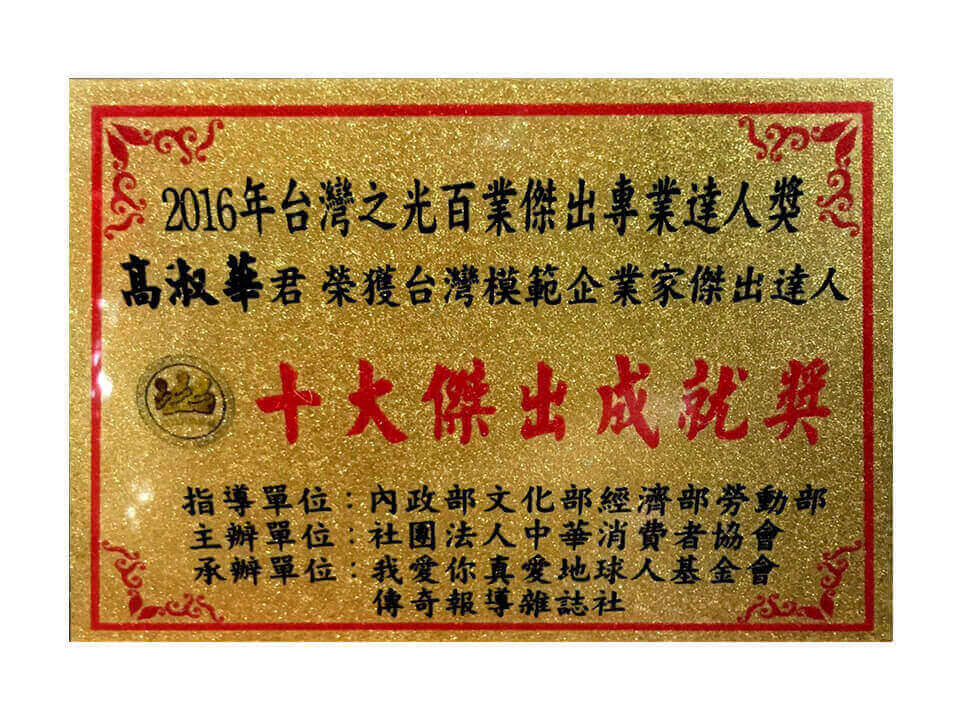 2016年台灣之光百業傑出專業達人獎
高淑華君 榮獲台灣模範企業家傑出達人
十大傑出成就獎
指導單位：內政部文化部經濟部勞動部
主辦單位：社團法人中華消費者協會
承辦單位：我愛你真愛地球人基金會
傳奇報導雜誌社